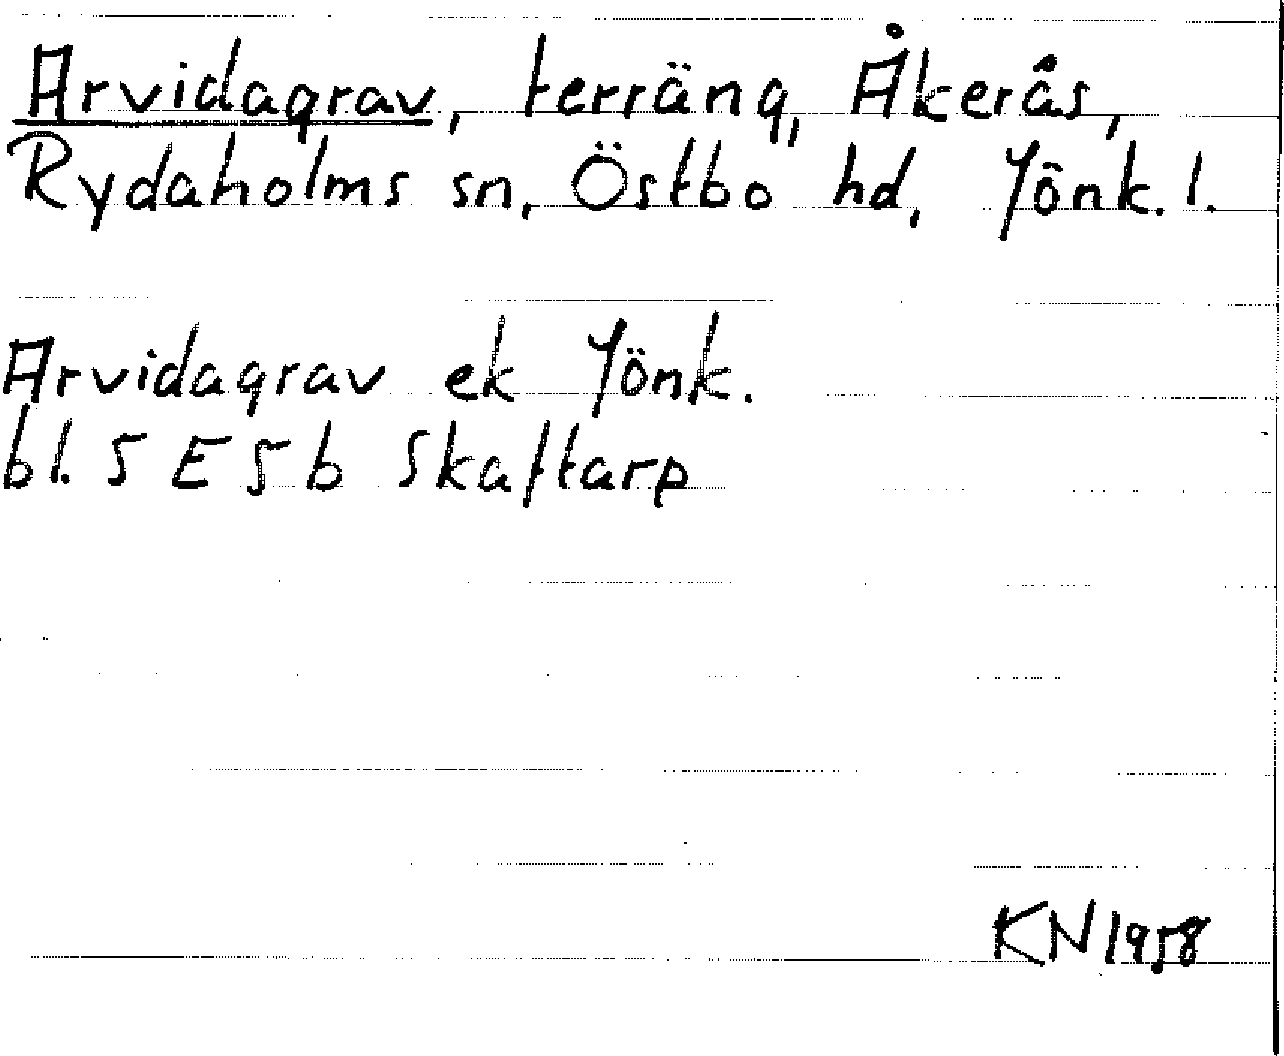 Arvidagrav, terräng, Åkerås,
Rydaholms sn, Östbo hd, Jönk. l.
Arvidagrav ek Jönk.
bl. 5 E 5 b Skaftarp
KN 1958